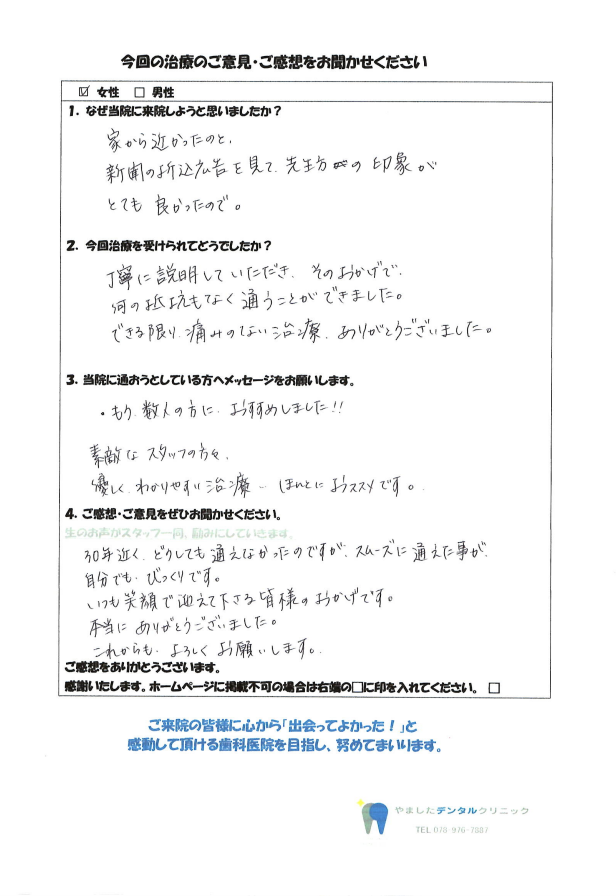 今回の治療のご意見・ご感想をお聞かせください
☑ 女性 □ 男性
1. なぜ当院に来院しようと思いましたか？
家から近かったのと、
新聞の折込広告を見て、先生方の印象が
とても 良かったので。
2. 今回治療を受けられてどうでしたか？
丁寧に説明していただき、そのおかげで、
何の抵抗もなく通うことができました。
できる限り、痛みのない治療、ありがとうございました。
3. 当院に通おうとしている方へメッセージをお願いします。
・もう、数人の方に、おすすめしました!!
素敵な スタッフの方々、
優しく、わかりやすい治療… ほんとにおススメです。
4. ご感想・ご意見をぜひお聞かせください。
生のお声がスタッフ一同、励みにしていきます。
30年近く、どうしても通えなかったのですが、スムーズに通えた事が、
自分でも、びっくりです。
いつも笑顔で迎えて下さる皆様のおかげです。
本当に ありがとうございました。
これからも、よろしくお願いします。
ご感想をありがとうございます。
感謝いたします。ホームページに掲載不可の場合は右端の□に印を入れてください。 □
ご来院の皆様に心から「出会ってよかった！」と
感動して頂ける歯科医院を目指し、努めてまいります。
やましたデンタルクリニック
TEL 078-976-7887